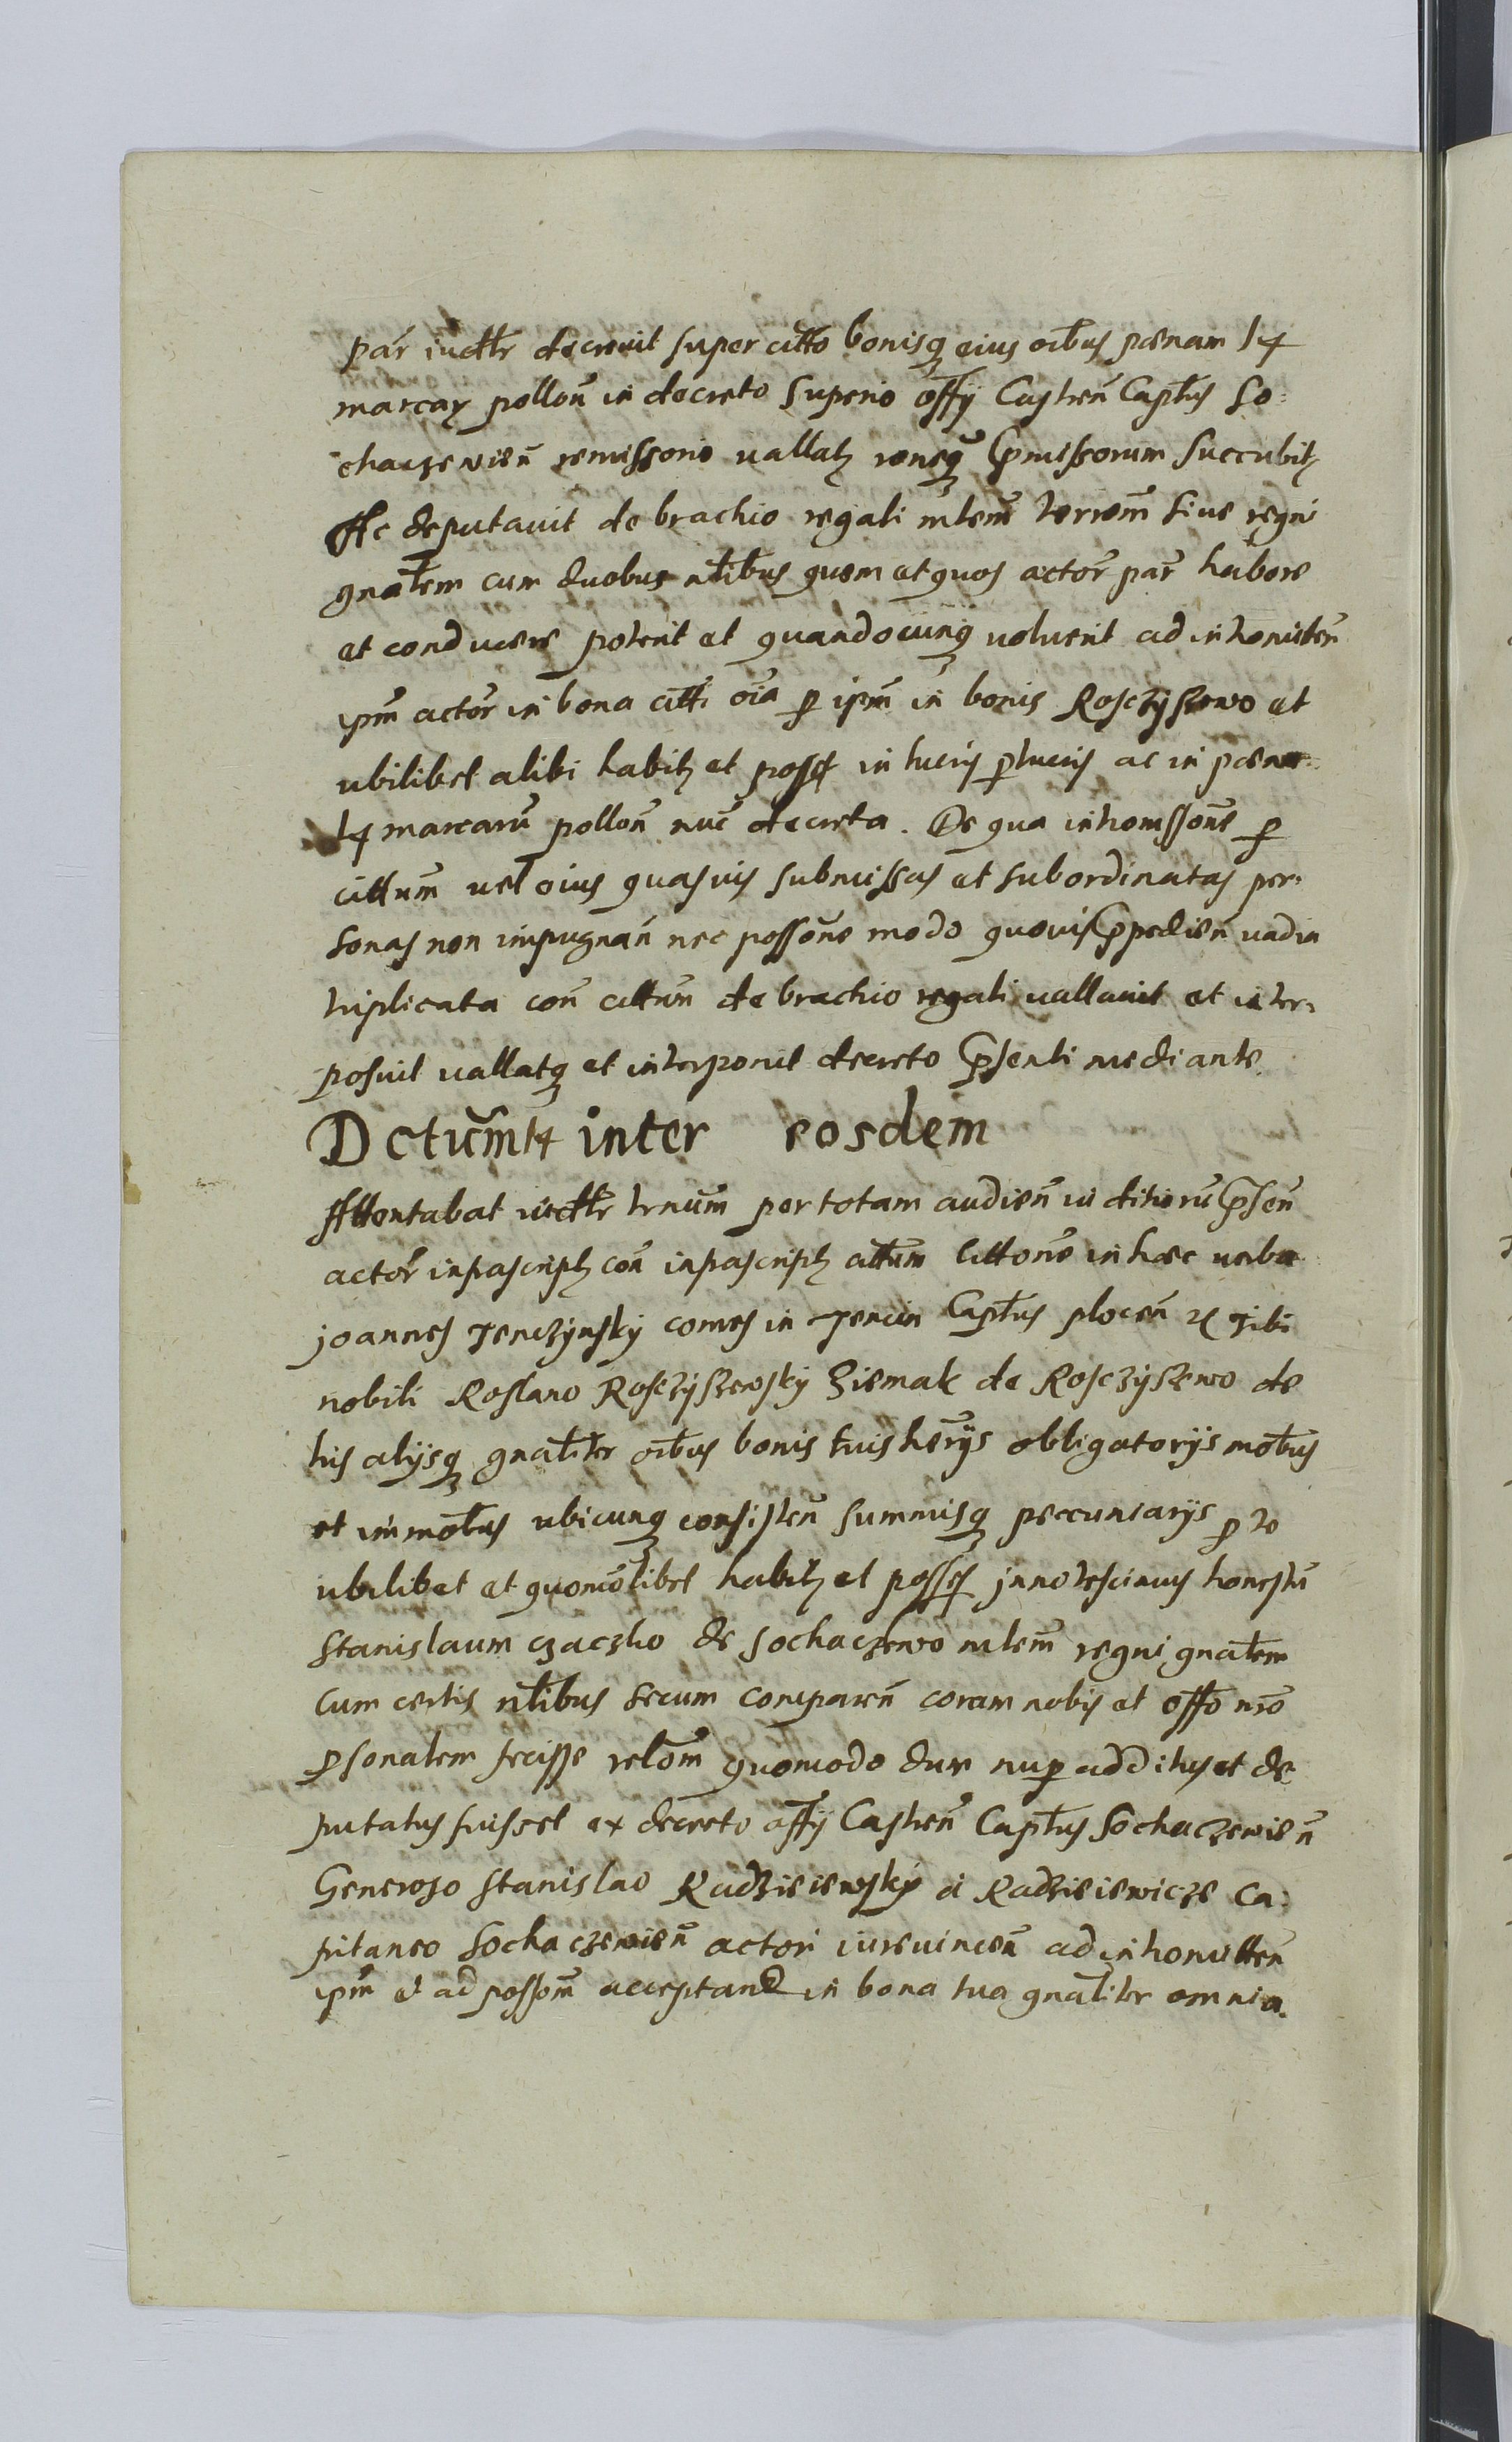 pár iudtlr decrevit super citto bonisq eius oibus pœnam 14
marcar pollon in decreto superio offy Castren Captus So:
chaczevien remissorio vallatz roneq pmissorum succubitz
Ac deputavit de brachio regali mlem terrem sive regni
gnalem cum duobus nlibus quem et quos actor par habere
et conducere poterit et quandocunq voluerit ad intromitten
ipm actor in bona citti oia p ipm in bonis Rosczyszewo et
ubilibet alibi habitz et possess in lucris plucris ac in pœna
14 marcaru pollon nuc decreta. De qua intromssone p
cittum vel eius quasvis submissas et subordinatas per:
sonas non impugnan nec possone modo quovis ppedien vadia
triplicata con cittum de brachio regali vallavit et inter:
posuit vallatq et interponit decreto psenti mediante
Dctum 14 inter eosdem
Attentabat iudtlr trnum per totam audien iuditioru psen
actor infrascriptz con infrascriptz cittum cittone in hæc verba
joannes Tenczynsky comes in Tencin Captus plocen Tibi
nobili Roslano Rosczyszewsky Ziemak de Rosczyszewo de
tuis alijsq gnaliter oibus bonis tuis herijs obligatorijs mobus
et immobus ubicunq consisten summisq peccuniarijs p te
ubilibet et quomolibet habitz et possess innotescimus honestu
Stanislaum czaczko de Sochaczewo mlem regni gnalem
cum certis nlibus secum comparen coram nobis et offo nro
psonalem fecisse relom quomodo dum nup additus et de
putatus fuisset ex decreto offy Castren Captus Sochaczewien
Generoso Stanislao Radzieiewsky a Radzieiewicze Ca:
pitaneo Sochaczewien actori iurevincen ad intromitten
ipm et ad possom acceptand in bona tua gnaliter omnia.